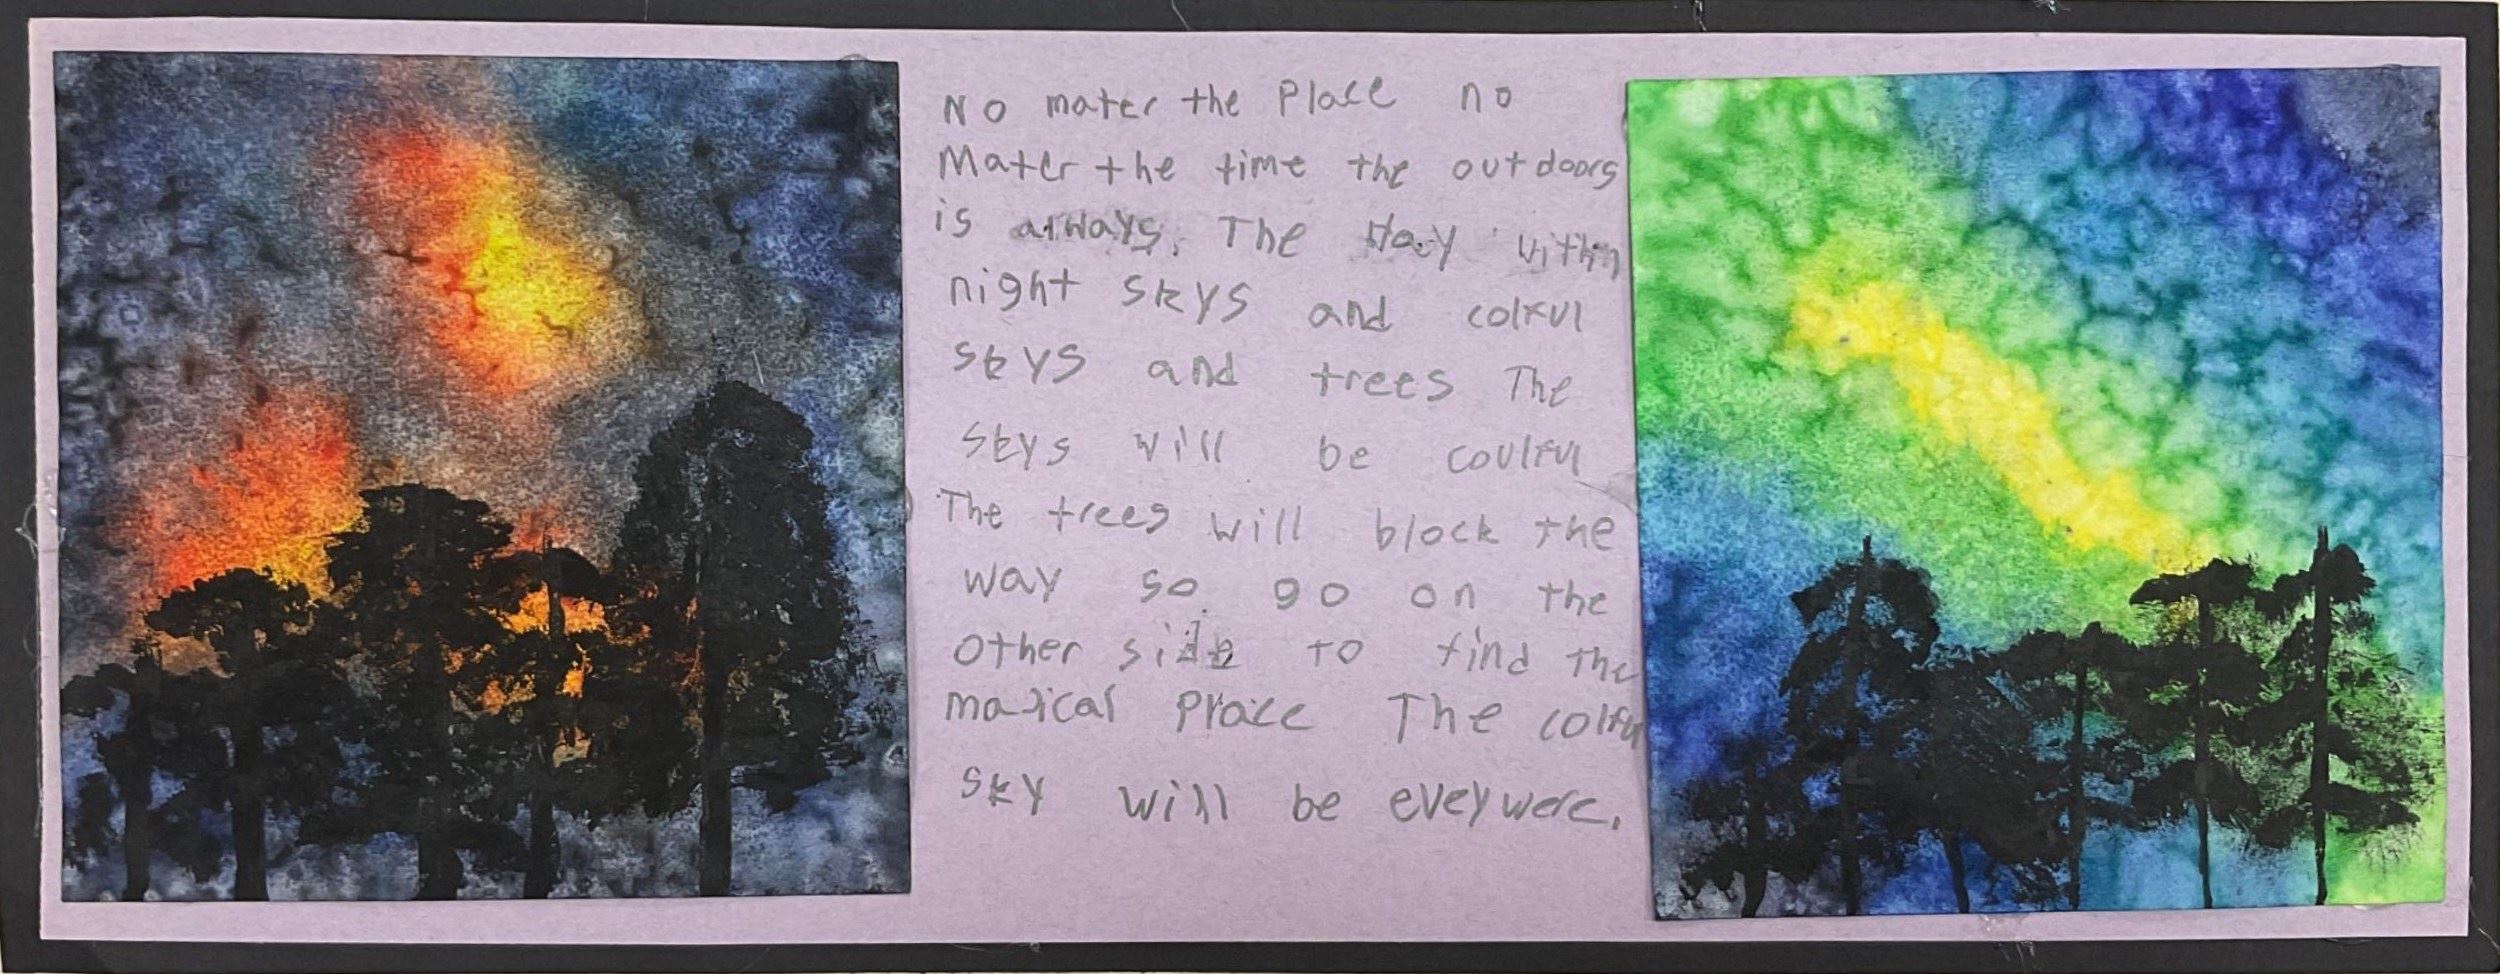 No mater the Place no
Mater the time the outdoors
is always. The Way within
night skys and colful
skys and trees The
skys will be coulful
The trees will block the
way so go on the
other side to find the
magical place The colful
sky will be eveywere.